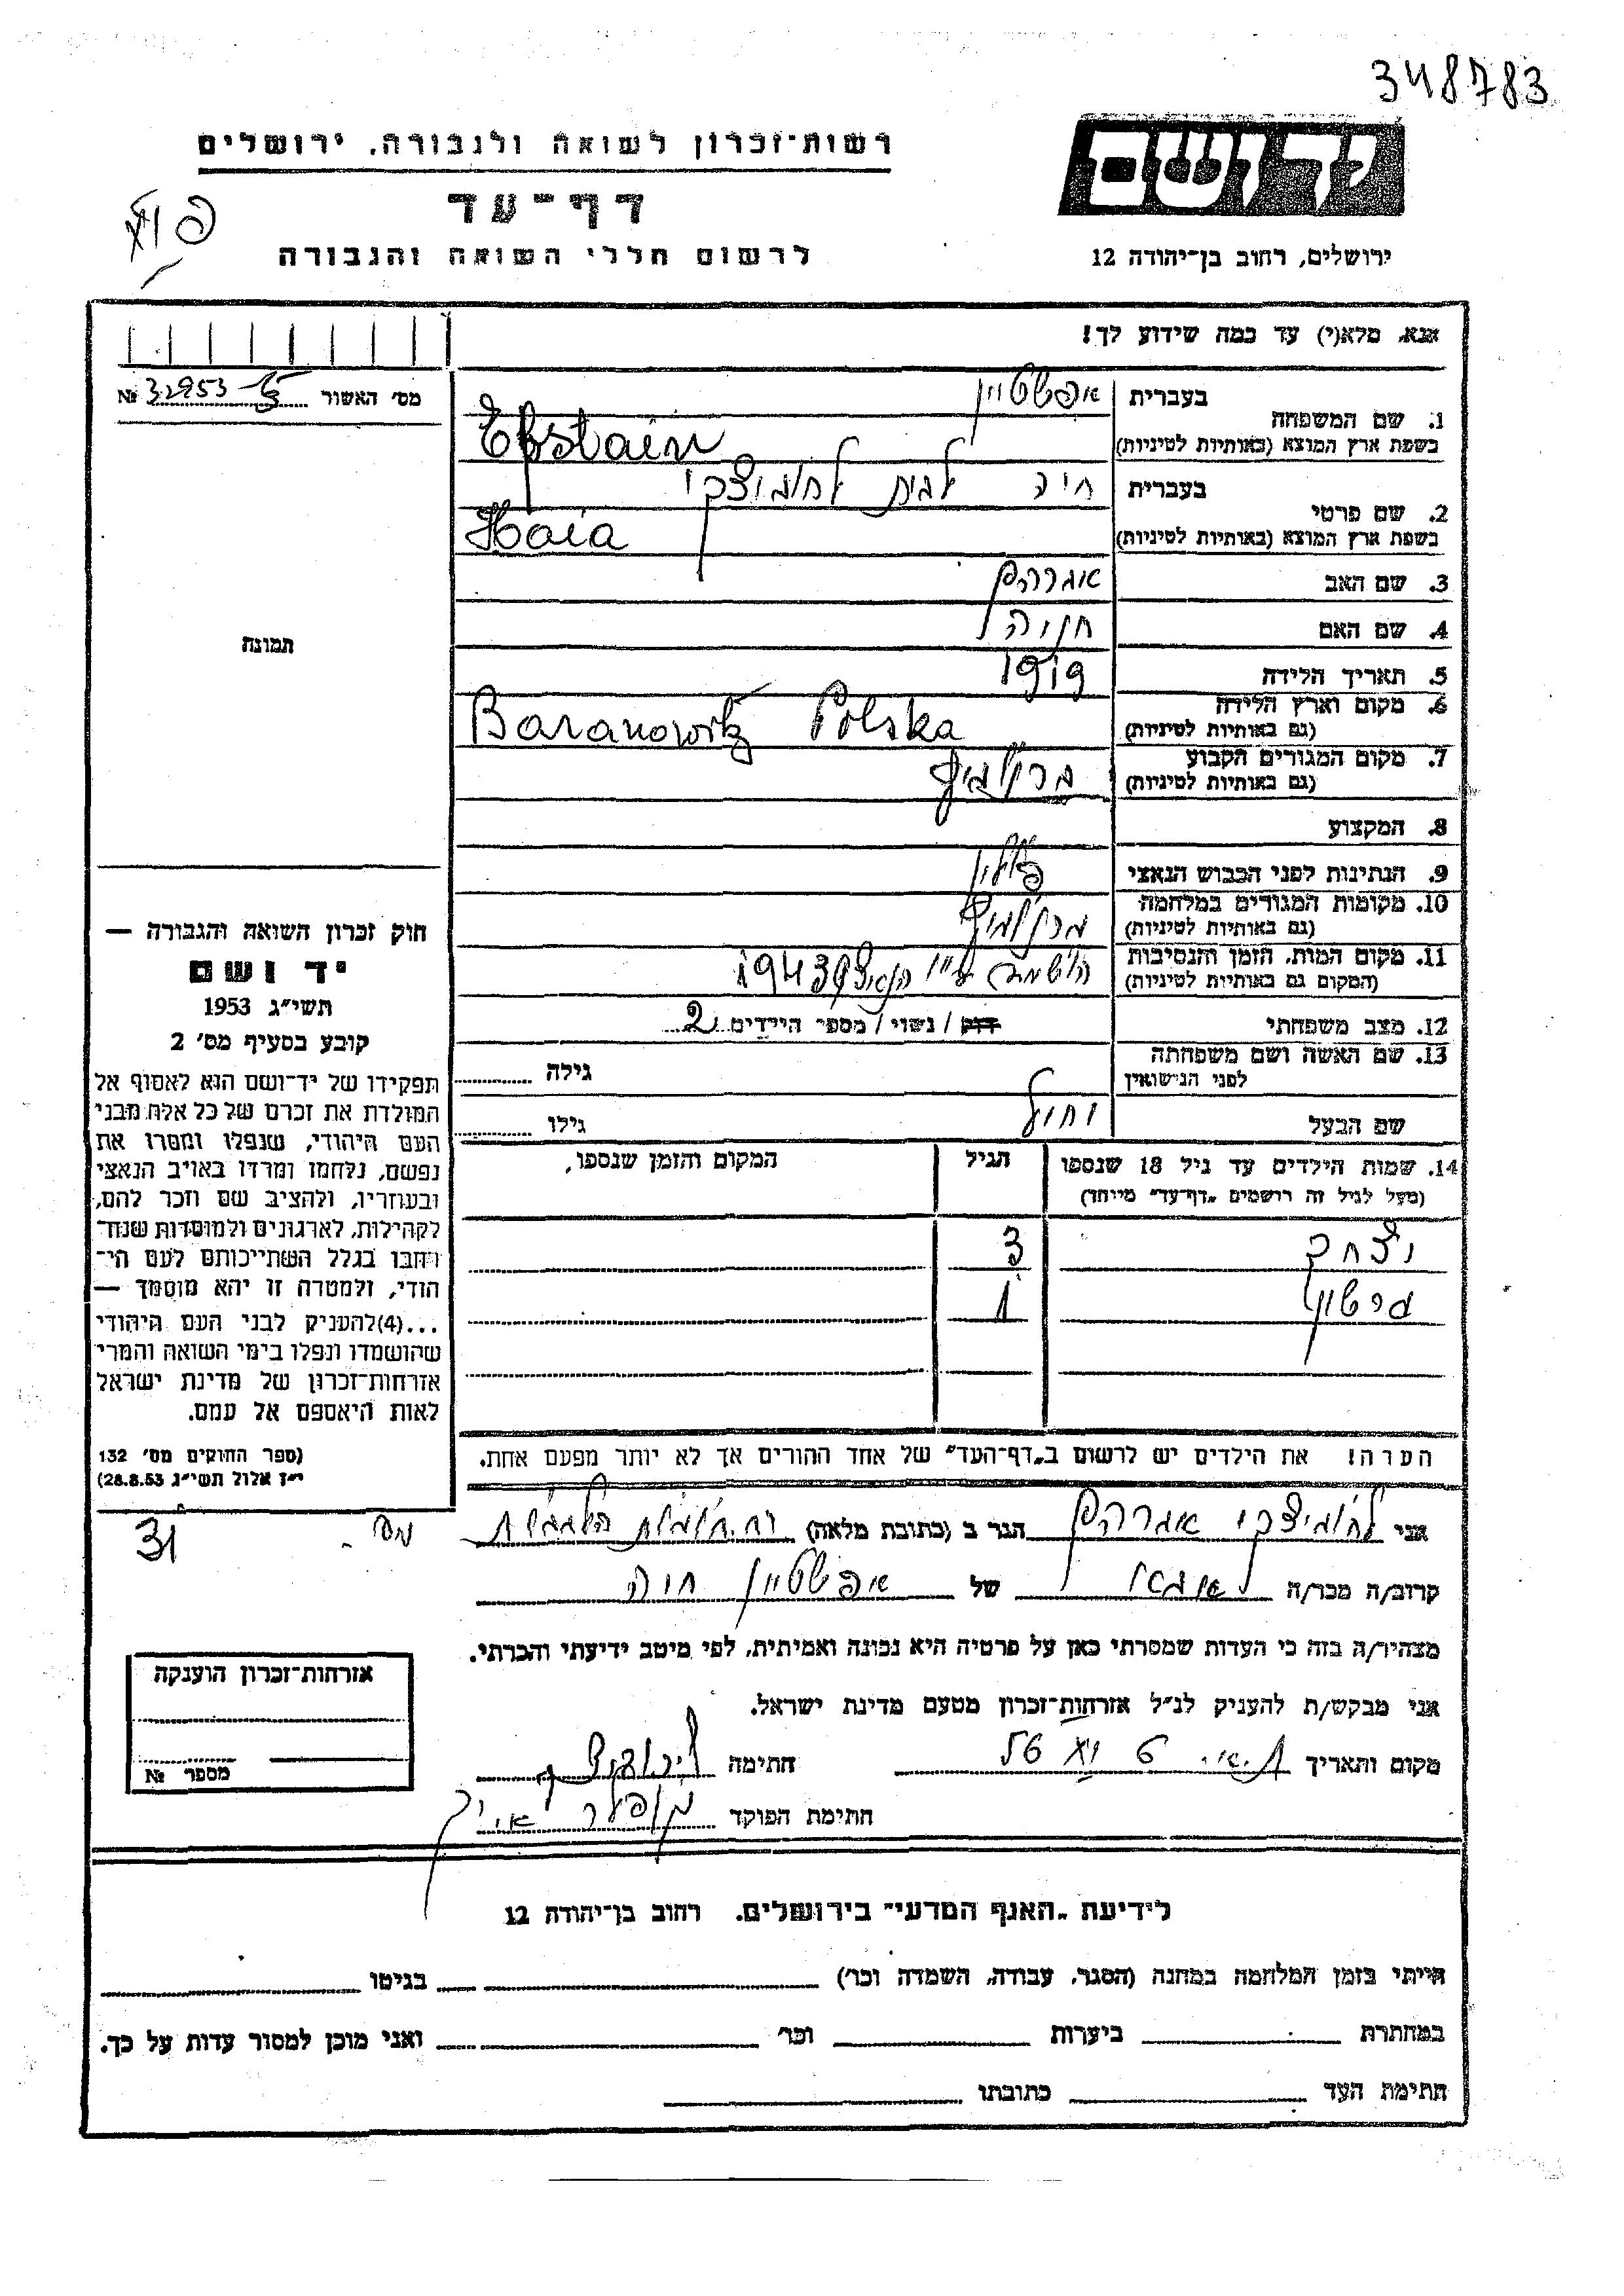 348783
רשות־זכרון לשואה ולגבורה, ירושלים
יד ושם
דף־עד
לרשום חללי השואה והגבורה
ירושלים, רחוב בן־יהודה 12
אנא, מלא(י) עד כמה שידוע לך!
מס׳ האשור № 32953
1. שם המשפחה
בעברית אפשטיין
בשפת ארץ המוצא (באותיות לטיניות) Epstain
2. שם פרטי
בעברית חיה לבית
בשפת ארץ המוצא (באותיות לטיניות) Haia
3. שם האב אברהם
4. שם האם
5. תאריך הלידה 1919
6. מקום וארץ הלידה
(גם באותיות לטיניות) Baranowitz Polska
7. מקום המגורים הקבוע
(גם באותיות לטיניות)
8. המקצוע
9. הנתינות לפני הכבוש הנאצי פולין
10. מקומות המגורים במלחמה
(גם באותיות לטיניות)
11. מקום המות, הזמן והנסיבות
(המקום גם באותיות לטיניות) 1943
12. מצב משפחתי רווק / נשוי / מספר הילדים 2
13. שם האשה ושם משפחתה
לפני הנישואין
גילה
שם הבעל
גילו
14. שמות הילדים עד גיל 18 שנספו
(מעל לגיל זה רושמים „דף־עד״ מיוחד)
הגיל
המקום והזמן שנספו,
יצחק 3
גרשון 1
הערה! את הילדים יש לרשום ב„דף־העד״ של אחד ההורים אך לא יותר מפעם אחת.
תמונה
חוק זכרון השואה והגבורה —
יד ושם
תשי״ג 1953
קובע בסעיף מס׳ 2
תפקידו של יד־ושם הוא לאסוף אל
המולדת את זכרם של כל אלה מבני
העם היהודי, שנפלו ומסרו את
נפשם, נלחמו ומרדו באויב הנאצי
ובעוזריו, ולהציב שם וזכר להם,
לקהילות, לארגונים ולמוסדות שנח־
רחבו בגלל השתייכותם לעם הי־
הודי, ולמטרה זו יהא מוסמך —
...(4)להעניק לבני העם היהודי
שהושמדו ונפלו בימי השואה והמרי
אזרחות־זכרון של מדינת ישראל
לאות היאספם אל עמם.
(ספר החוקים מס׳ 132
י״ז אלול תשי״ג 28.8.53)
31
אני אברהם הגר ב (כתובת מלאה)
קרוב/ה מכר/ה של אפשטיין חיה
מצהיר/ה בזה כי העדות שמסרתי כאן על פרטיה היא נכונה ואמיתית, לפי מיטב ידיעתי והכרתי.
אני מבקש/ת להעניק לנ״ל אזרחות־זכרון מטעם מדינת ישראל.
מקום ותאריך 56 חתימה
חתימת הפוקד
אזרחות־זכרון הוענקה
מספר №
לידיעת „האגף המדעי״ בירושלים, רחוב בן־יהודה 12
הייתי בזמן המלחמה במחנה (הסגר, עבודה, השמדה וכר׳) בגיטו
במחתרת ביערות וכר׳ ואני מוכן למסור עדות על כך.
חתימת העד כתובתו